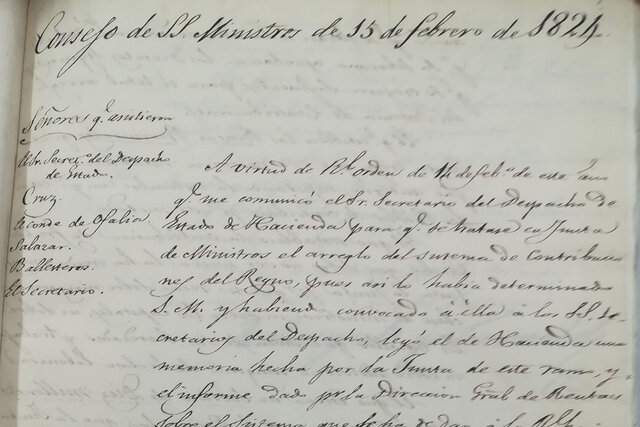 Consejo de SS. Ministros de 15 de febrero de 1824.
Señores q.e asistieron
El Sr. Secret.o del Despacho
de Estado
Cruz.
El conde de Ofalia.
Salazar.
Ballesteros.
El Secretario.
A virtud de Rl. orden de 14 de feb.o de este
q.e me comunicó el Sr. Secretario del Despacho de
Estado de Hacienda para q.e se tratase en Junta
de Ministros el arreglo del sistema de Contribucio
nes del Reyno, pues asi lo habia determinado
S. M. y habiend convocado á ella a los SS. Se-
cretarios del Despacho, leyó el de Hacienda una
memoria hecha por la Junta de este ramo, y
el informe, dad pr. la Direccion Gral de Rentas
Sobre el Sistema que